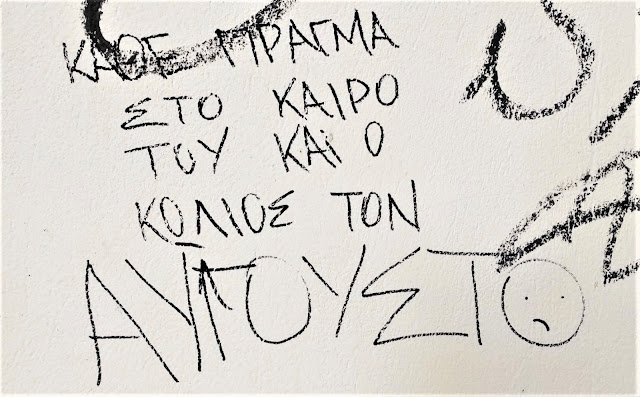 ΚΑΘΕ ΠΡΑΓΜΑ
ΣΤΟ ΚΑΙΡΟ
ΤΟΥ ΚΑΙ Ο
ΚΩΛΙΟΣ ΤΟΝ
ΑΥΓΟΥΣΤΟ